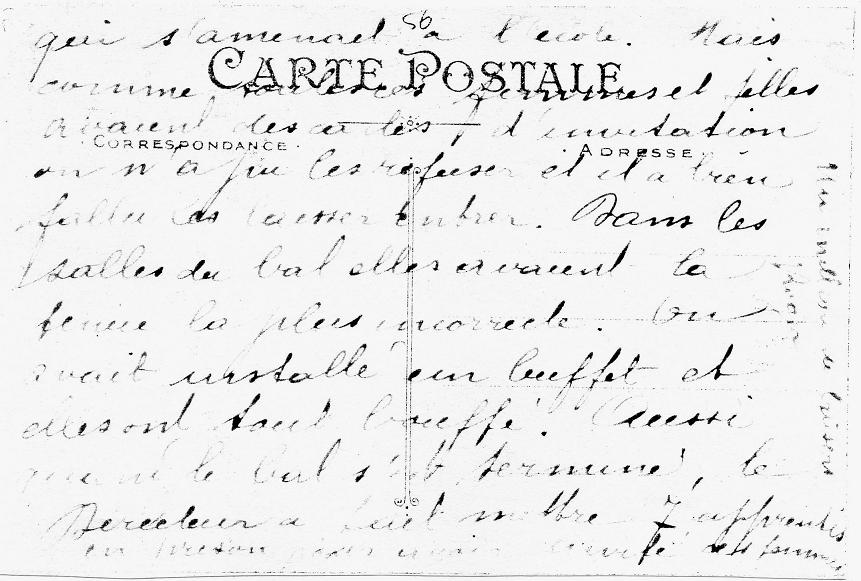 56
qui s'amenait à l'école. Mais
CARTE POSTALE
comme toutes ces femmes et filles
avaient des cartes d'invitation
CORRESPONDANCE
ADRESSE
on n'a pu les refuser et il a bien
fallu les laisser entrer. Dans les
salles du bal elles avaient la
tenue la plus incorrecte. On
avait installé un buffet et
elles ont tout bouffé. Aussi
quand le bal s'est terminé, le
Directeur a fait mettre 7 apprentis
en prison pour avoir invité ces femmes
Un million de baisers